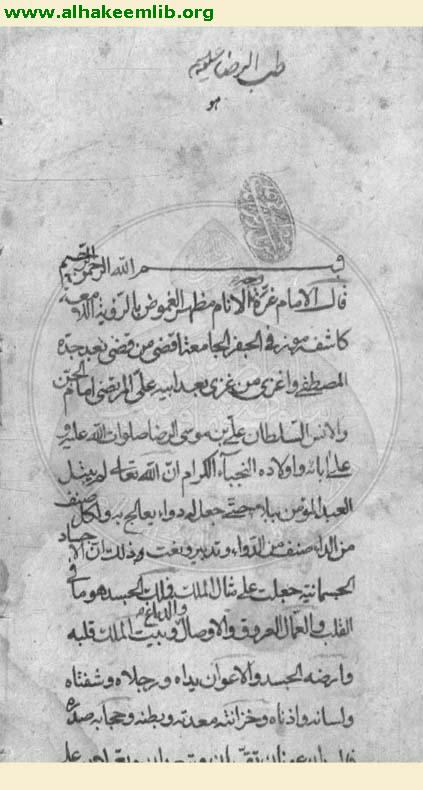 www.alhakeemlib.org
طب الرضا
هو
بسم الله الرحمن الرحيم
قال الامام غرة الانام مظهر الغموض بالروية اللامعة
كاشف رموز في الجفر الجامعة اقضى من قضى بعد جده
المصطفى واغزى من غزى بعد ابيه على المرتضى امام الجن
والانس السلطان على بن موسى الرضا صلوات الله عليه و
على ابائه واولاده النجباء الكرام ان الله تعالى لم يبتل
العبد المؤمن ببلاء حتى جعل له دواء يعالج به ولكل صنف
من الداء صنف من الدواء وتدبير ونعت وذلك ان الاجساد
الجسمانية جعلت على مثال الملك فملك الجسد هو ما في
القلب والعمال العروق والاوصال والدماغ وبيت الملك قلبه
وارضه الجسد والاعوان يداه ورجلاه وشفتاه
ولسانه واذناه وخزانته معدته وبطنه وحجابه صدره